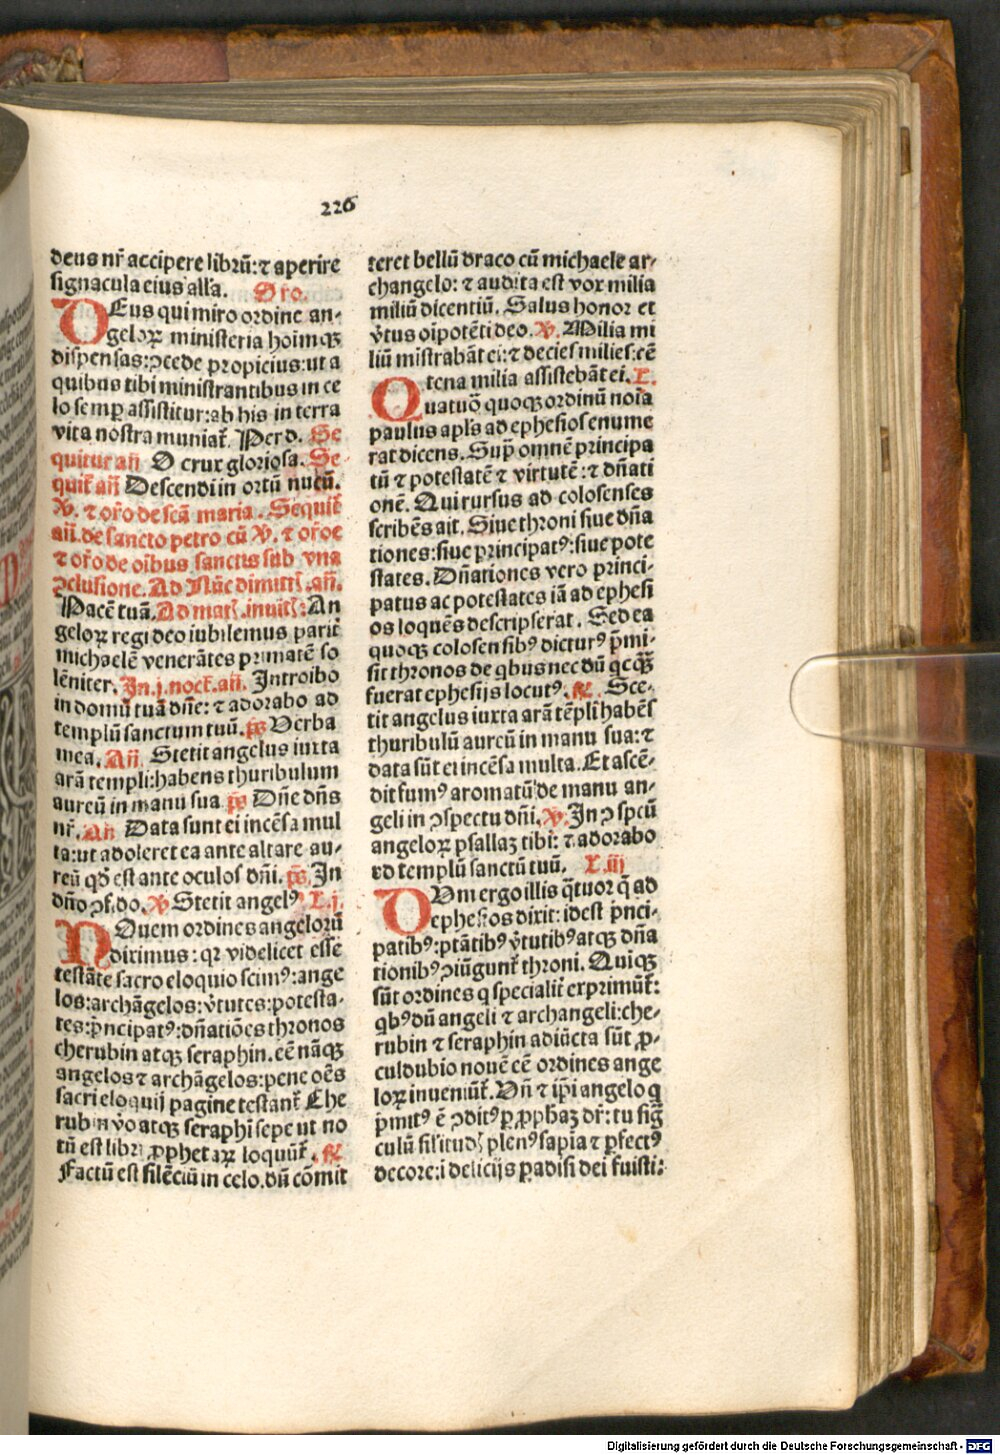 226
deus nr̄ accipere librū: ⁊ aperire
signacula eius all'a. Oro.
DEus qui miro ordine an-
geloꝝ ministeria hoimqꝫ
dispensas: ꝯcede propicius: ut a
quibus tibi ministrantibus in ce
lo semꝑ assistitur: ab his in terra
vita nostra muniat̄. Per d. Se
quitur añ O crux gloriosa. Se-
quit̄ añ Descendi in ortū nucū.
V. ⁊ or̄o de scā maria. Sequit̄
añ. de sancto petro cū V. ⁊ or̄oe
⁊ or̄o de oībus sanctis sub vna
ꝯclusione. Ad Nūc dimitt. añ.
Pacē tuā. Ad mat. inuit: An
geloꝝ regi deo iubilemus parit̄
michaelē venerātes primatē so
lēniter. In .j. noct̄. añ. Introibo
in domū tuā dn̄e: ⁊ adorabo ad
templū sanctum tuū. ps Verba
mea. Añ. Stetit angelus iuxta
arā templi: habens thuribulum
aureū in manu sua ps Dn̄e dn̄s
nr̄. Añ Data sunt ei incēsa mul
ta: ut adoleret ea ante altare au-
reū qd̄ est ante oculos dn̄i. ps In
dn̄o ꝯf. do. V Stetit angelꝰ. L. j.
NOuem ordines angelorū
dixīmus: qꝛ videlicet esse
testāte sacro eloquio scimꝰ: ange
los: archāgelos: v̄tutes: potesta-
tes: p̄ncipatꝰ: dn̄atiōes thronos
cherubin atqꝫ seraphin. eē nāqꝫ
angelos ⁊ archāgelos: pene oēs
sacri eloquij pagine testant̄ Che
rubin v̄o atqꝫ seraphi sepe ut no
tū est libri ꝓphetaꝝ loquūt̄. R
Factū est silēciū in celo. dū cōmit
teret bellū draco cū michaele ar-
changelo: ⁊ audita est vox milia
miliū dicentiū. Salus honor et
v̄tus oīpotēti deo. V. Milia mi
liū mīstrabāt ei: ⁊ decies milies cē
tena milia assistebāt ei. L.
QUatuor̄ quoqꝫ ordinū noīa
paulus apl's ad ephesios enume
rat dicens. Supꝛ omnē principa
tū ⁊ potestatē ⁊ virtutē: ⁊ dn̄ati
onē. Qui rursus ad colosenses
scribēs ait. Siue throni siue dn̄a
tiones: siue principatꝰ: siue pote
states. Dn̄ationes vero princi-
patus ac potestates iā ad ephesi
os loquēs descripserat. Sed ea
quoqꝫ colosensibꝰ dicturꝰ p̄mi-
sit thronos de qbus nec dū qcqꝫ
fuerat ephesijs locutꝰ. R. Ste-
tit angelus iuxta arā tēpli habēs
thuribulū aureū in manu sua: ⁊
data sūt ei incēsa multa. Et ascē-
dit fumꝰ aromatū de manu an-
geli in ꝯspectu dn̄i. V. In ꝯspcū
angeloꝝ psallaꝫ tibi: ⁊ adorabo
ad templū sanctū tuū. L. iij
DUm ergo illis q̄tuor q̄ ad
ephesios dixit: idest p̄nci-
patibꝰ: ptātibꝰ v̄tutibꝰ atqꝫ dn̄a
tionibꝰ ꝯiūgunt̄ throni. Quiqꝫ
sūt ordines q specialit̄ exprimūt̄:
qbꝰ dū angeli ⁊ archangeli: che-
rubin ⁊ seraphin adiūcta sūt ꝓ-
culdubio nouē eē ordines ange
loꝝ inueniūt̄. Vn̄ ⁊ ip̄i angelo q
p̄mitꝰ ē ꝯditꝰ ꝑ ꝓphaꝫ dr̄: tu sig̃
culū silitud plenꝰ sapīa ⁊ ꝑfectꝰ
decore: i delicijs ꝑadisi dei fuisti:
Digitalisierung gefördert durch die Deutsche Forschungsgemeinschaft - DFG